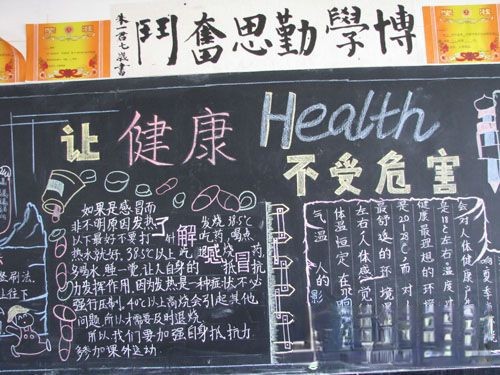 博學勤思奮鬥
朱一君七歲書
让健康Health
不受危害
了解感冒
如果是感冒而
非不明原因发热 发烧,38.5℃
以下最好不要打针吃药,喝点
热水就好,38.5℃以上吃退烧药,
多喝水睡一觉,让人自身的抵抗
力发挥作用,因为发热是一种症状,不必
强行压制,40℃以上高烧会引起其他
问题,所以才需要及时退烧。
所以,我们要加强自身抵抗力
参加课外运动。
会对人体健康
健康最理想的环境
最舒适的环境
左右,人体感觉
体温恒定,在
气温 人的影
夏季
刷法,
上往下